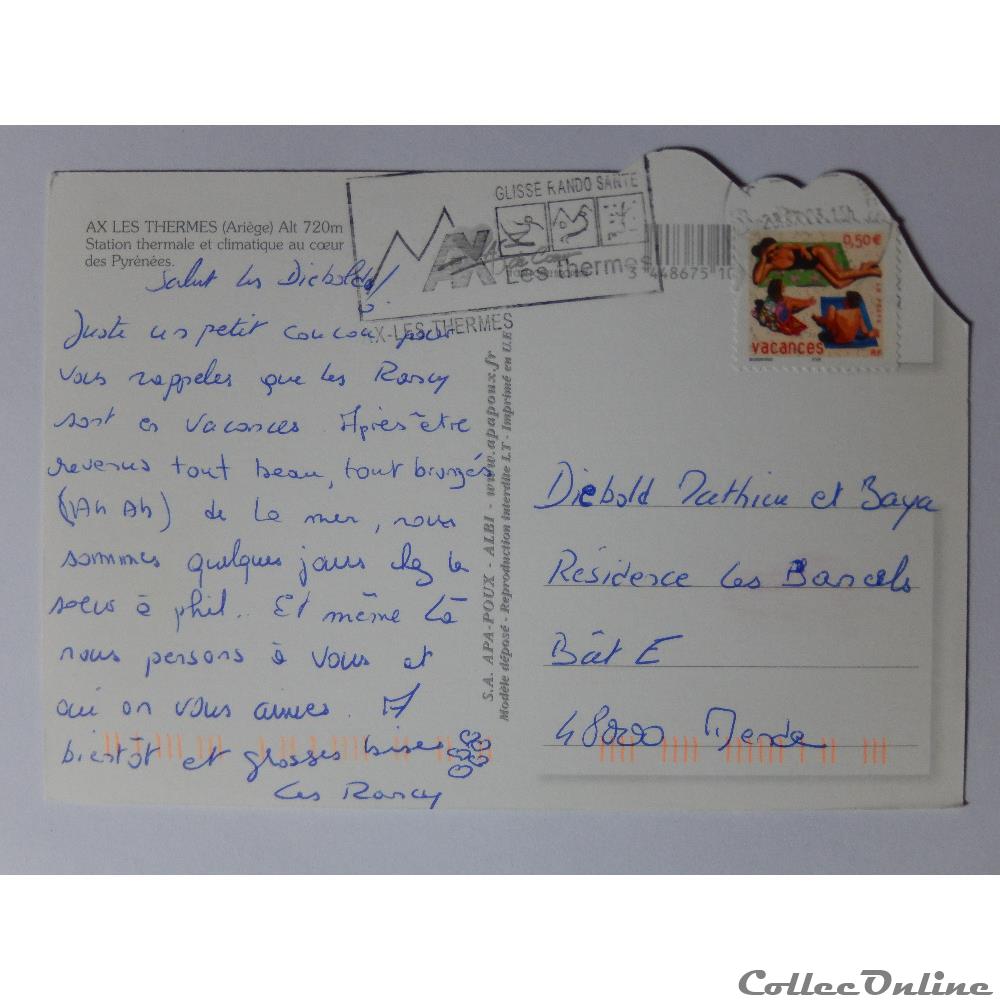 AX LES THERMES (Ariège) Alt 720m
Station thermale et climatique au cœur
des Pyrénées.
GLISSE RANDO SANTE
AX
Les thermes
AX-LES-THERMES
3 448675 10
0,50 €
LA POSTE
vacances
RF
Salut les Diebolds!
Juste un petit coucou pour
vous rappeler que les Roncy
sont en vacances. Après être
revenus tout beau, tout bronzés
(Ah Ah) de la mer, nous
sommes quelques jours chez la
soeur à phil.. Et même là
nous pensons à vous et
oui on vous aimes. A
bientôt et grosses bises
Les Roncy
S.A. APA-POUX - ALBI - www.apapoux.fr
Modèle déposé - Reproduction interdite LT - Imprimé en U.E
Diebold Mathieu et Baya
Résidence Les Bancels
Bât E
48000 Mende
CollecOnline